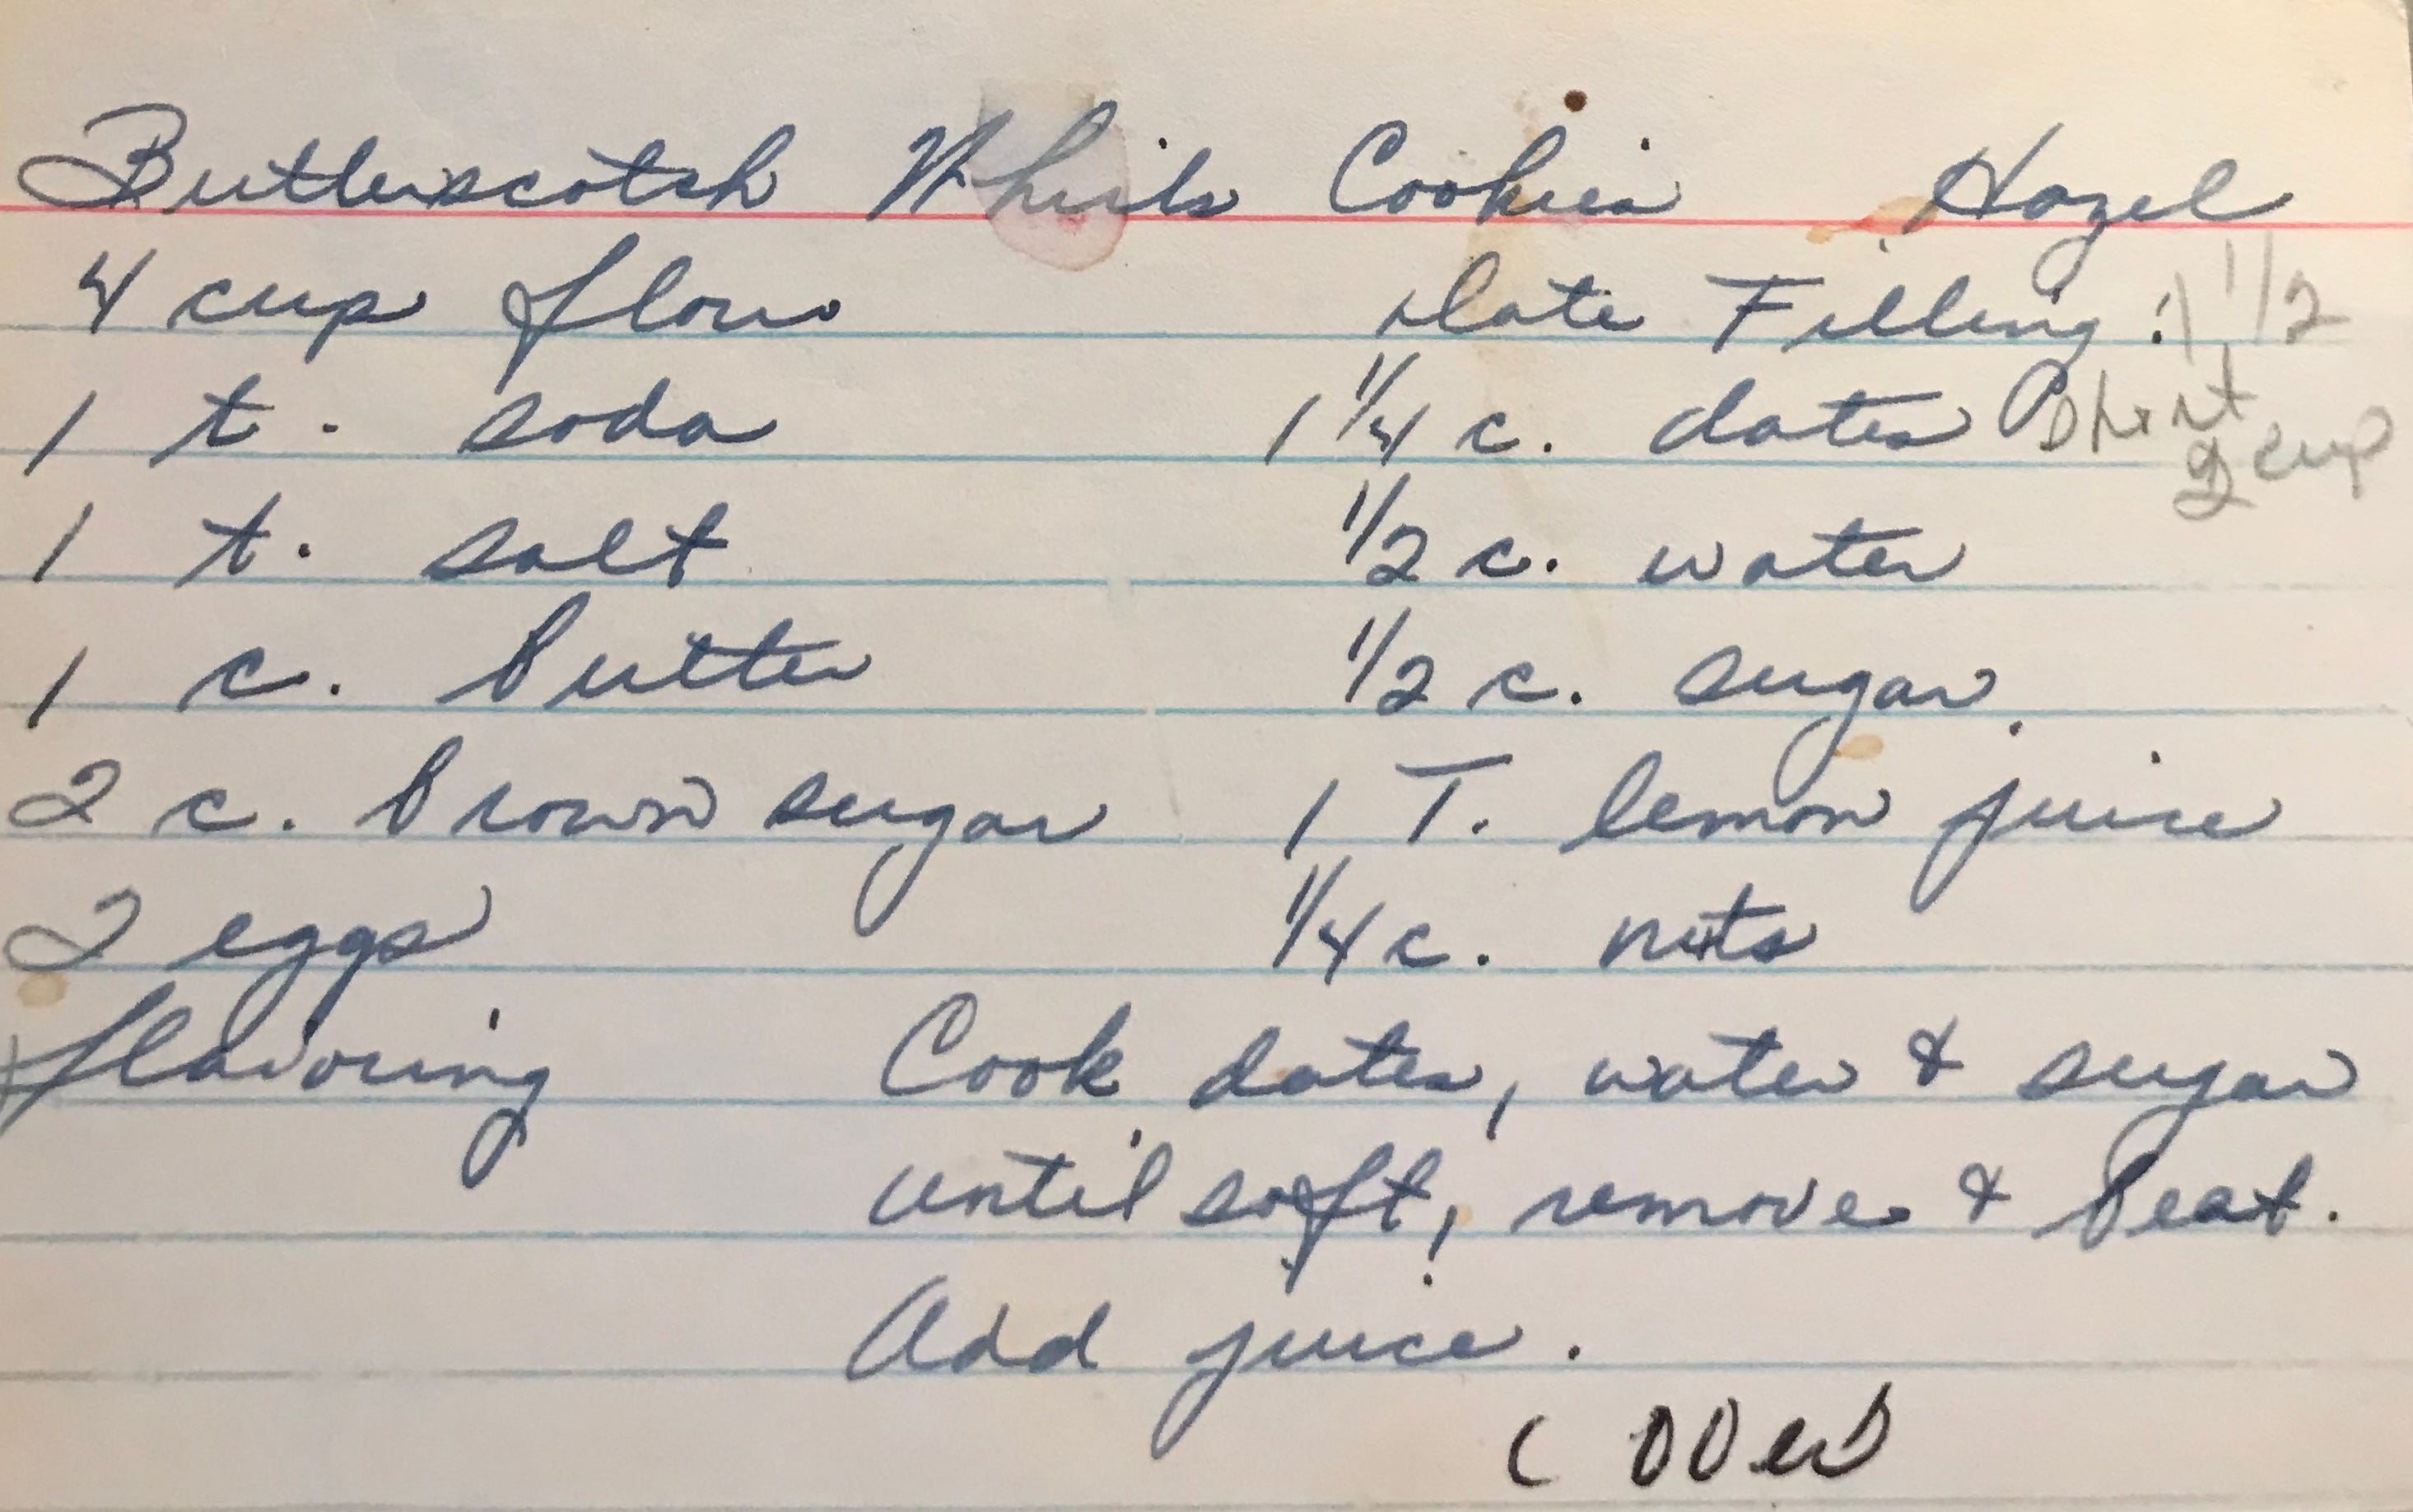 Butterscotch Whirls Cookies Hazel
4 cup flour
1 t. soda
1 t. salt
1 c. Butter
2 c. Brown sugar
2 eggs
flavoring
Date Filling: 1 1/2
1 1/4 c. dates short
2 cup
1/2 c. water
1/2 c. sugar
1 T. lemon juice
1/4 c. nuts
Cook dates, water & sugar
until soft, remove & Beat.
Add juice.
(over)